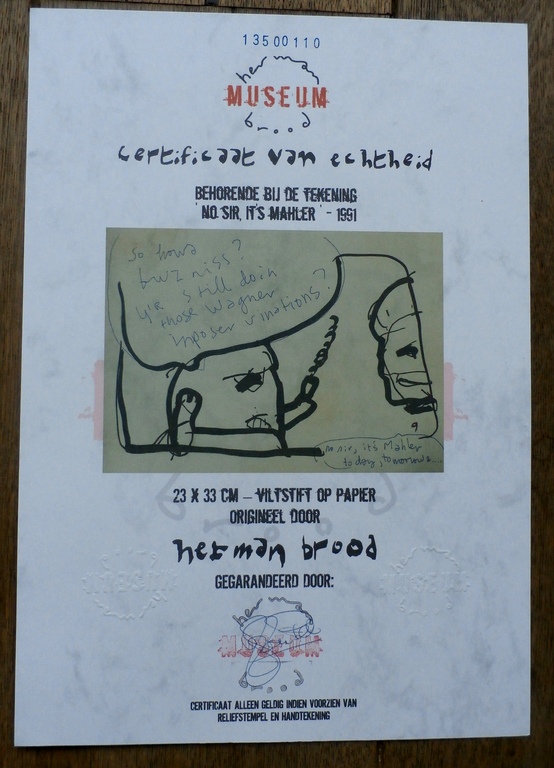 13500110
her
MUSEUM
b----d
certificaat van echtheid
BEHORENDE BIJ DE TEKENING
'NO SIR, IT'S MAHLER' - 1991
So hows
bwz niss?
y'R still doin
those Wagner
imposer vinations?
no sir, it's Mahler
today, tomorrow...
23 X 33 CM – VILTSTIFT OP PAPIER
ORIGINEEL DOOR
herman brood
GEGARANDEERD DOOR:
MUSEUM
MUSEUM
MUSEUM
CERTIFICAAT ALLEEN GELDIG INDIEN VOORZIEN VAN
RELIEFSTEMPEL EN HANDTEKENING